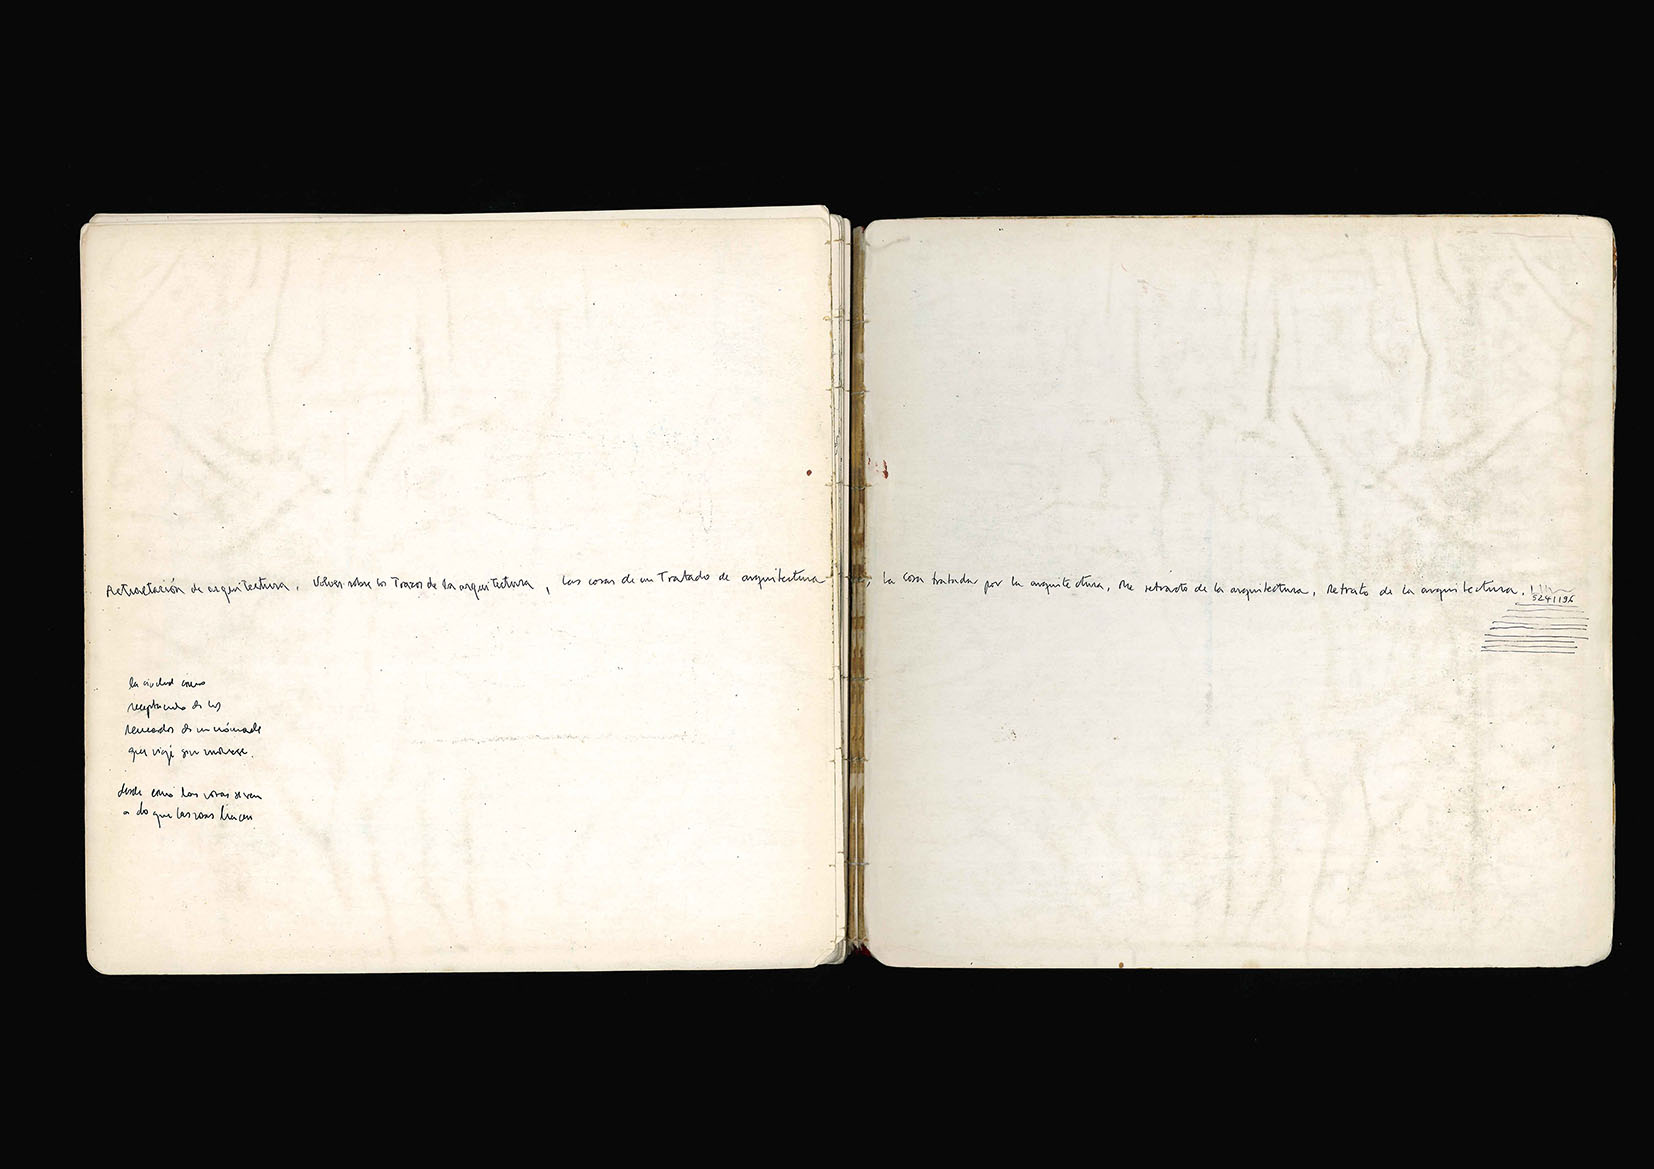 Retractación de arquitectura, Volver sobre los Trazos de la arquitectura, las cosas de un Tratado de arquitectura, la cosa tratada por la arquitectura, Me retracto de la arquitectura, Retrato de la arquitectura.
la ciudad como
receptáculo de los
de un nómade
que viajó sin moverse.
desde como las cosas se ven
a lo que las cosas hacen